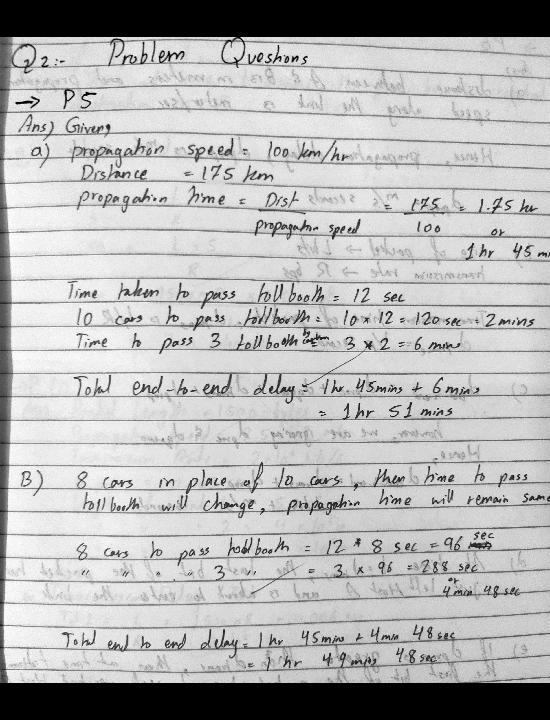 Q2:- Problem Questions
→ P5
Ans) Given,
a) propagation speed = 100 km/hr
Distance = 175 km
propagation time = Dist / propagation speed = 175 / 100 = 1.75 hr
or
1 hr 45 m
Time taken to pass tollbooth = 12 sec
10 cars to pass tollbooth = 10 * 12 = 120 sec = 2 mins
Time to pass 3 tollbooth = 3 * 2 = 6 mins
Total end-to-end delay = 1 hr 45 mins + 6 mins
= 1 hr 51 mins
B) 8 cars in place of 10 cars, then time to pass
tollbooth will change, propagation time will remain same
8 cars to pass tollbooth = 12 * 8 sec = 96 sec
" " " 3 " = 3 * 96 = 288 sec
or
4 min 48 sec
Total end to end delay = 1 hr 45 mins + 4 min 48 sec
= 1 hr 49 mins 48 sec